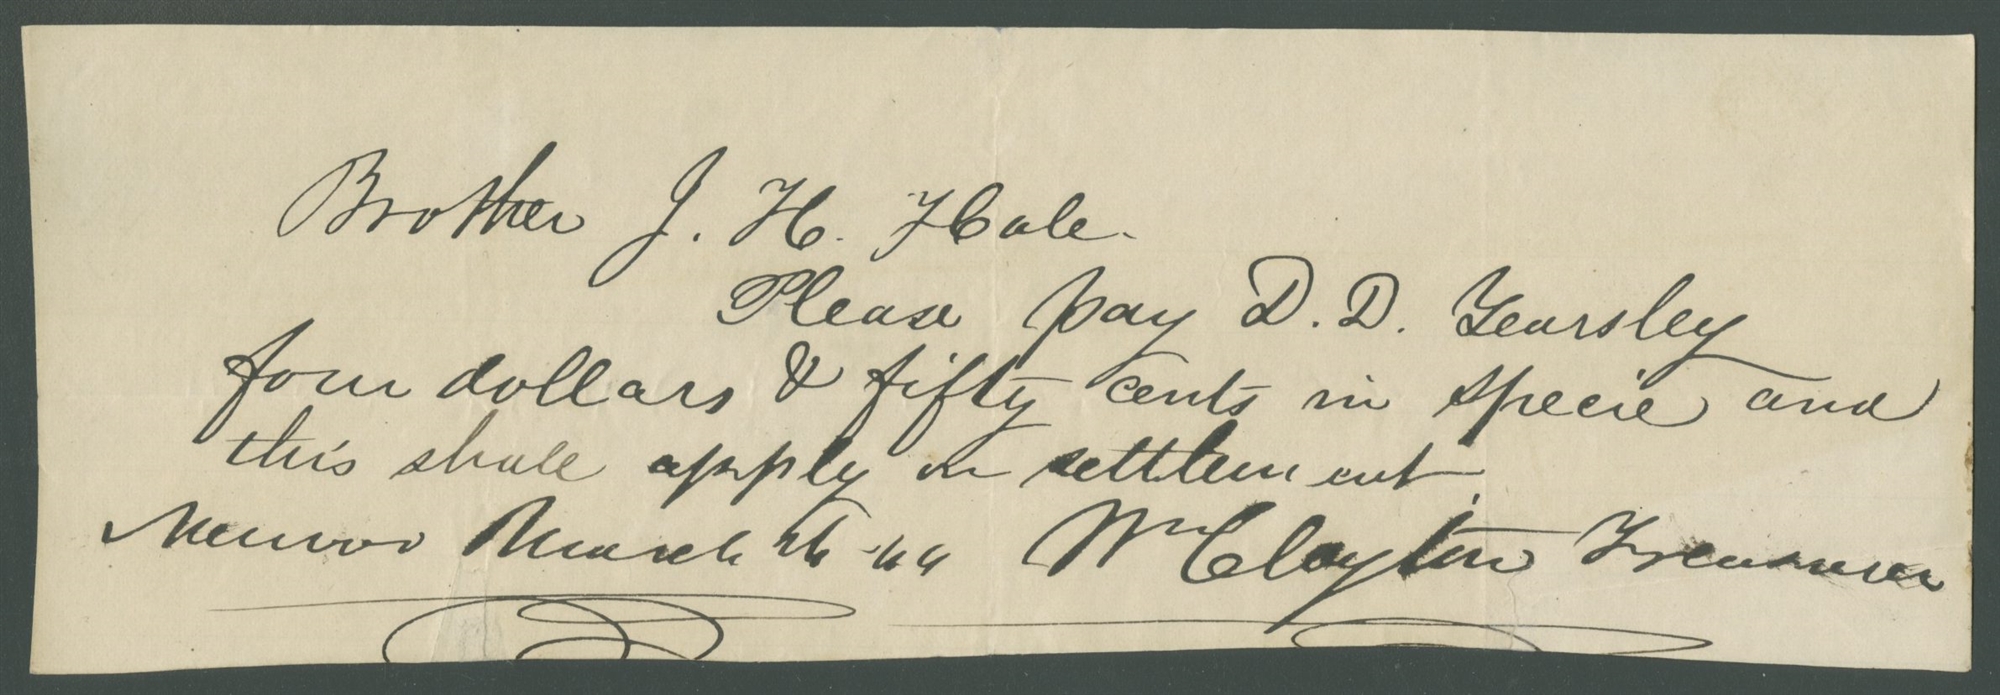 Brother J. H. Hale.
Please pay D. D. Yearsley
four dollars & fifty cents in specie and
this shall apply on settlement.
Nauvoo March 26 -44 Wm Clayton Treasurer